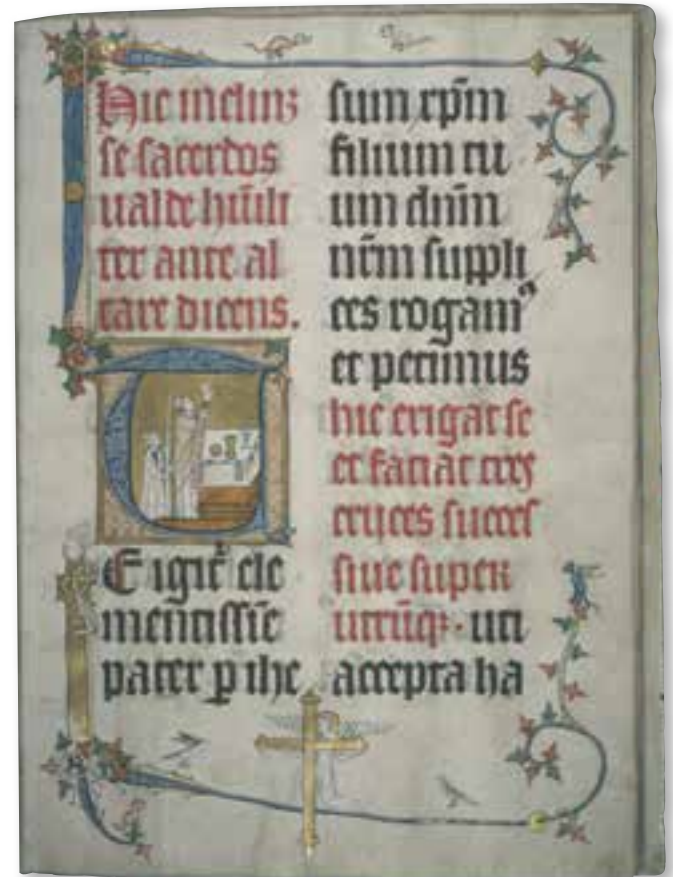 Hic inclinꝫ
se sacerdos
ualde hūilı
ter ante al
tare dicens.
T
E igit᷑ cle
mentissīe
pater ꝑ ihe
sum xp̄m
filium tu
um dn̄m
nr̄m suppli
ces rogamꝰ
et petimus
hic erigat se
et faciat tres
cruces succes
siue super
utrūqꝫ · uti
accepta ha